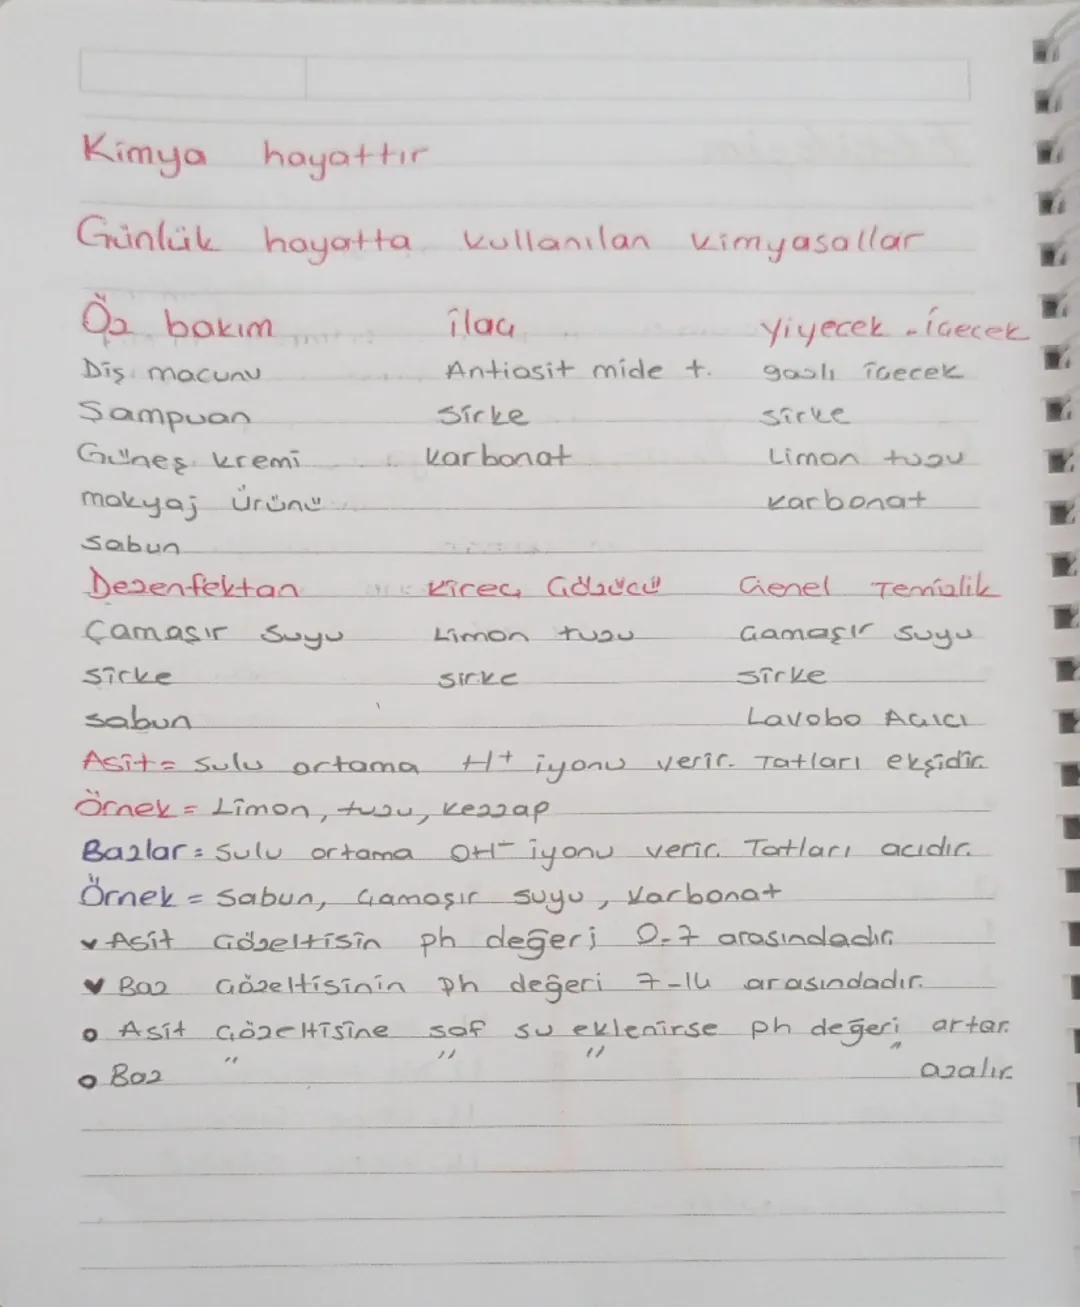 Kimya hayattır
Günlük hayatta kullanılan kimyasallar
Öz bakım ilaç yiyecek - içecek
Diş macunu Antiasit mide t. gazlı içecek
Şampuan Sirke sirke
Güneş kremi karbonat Limon tuzu
makyaj ürünü karbonat
sabun
Dezenfektan kireç Çözücü Genel Temizlik
Çamaşır Suyu Limon tuzu Çamaşır suyu
sirke sirke sirke
sabun Lavobo Açıcı
Asit = sulu ortama H+ iyonu verir. Tatları ekşidir.
Örnek = Limon, tuzu, kezzap
Bazlar = sulu ortama OH- iyonu verir. Tatları acıdır.
Örnek = Sabun, Çamaşır suyu, karbonat
✓ Asit Çözeltisin ph değeri 0-7 arasındadır.
♥ Baz Çözeltisinin Ph değeri 7-14 arasındadır.
o Asit Çözeltisine saf su eklenirse ph değeri artar.
o Baz " " " " azalır.